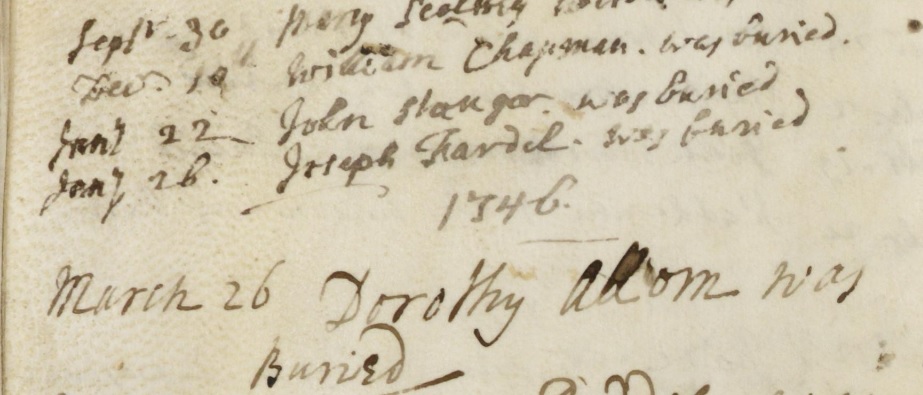 Septr 30 Mary
Decr 10th William Chapman. was buried.
Jany 22 John Slaugor. was buried
Jany 26. Joseph Fardel. was buried
1746.
March 26 Dorothy Allom was
Buried